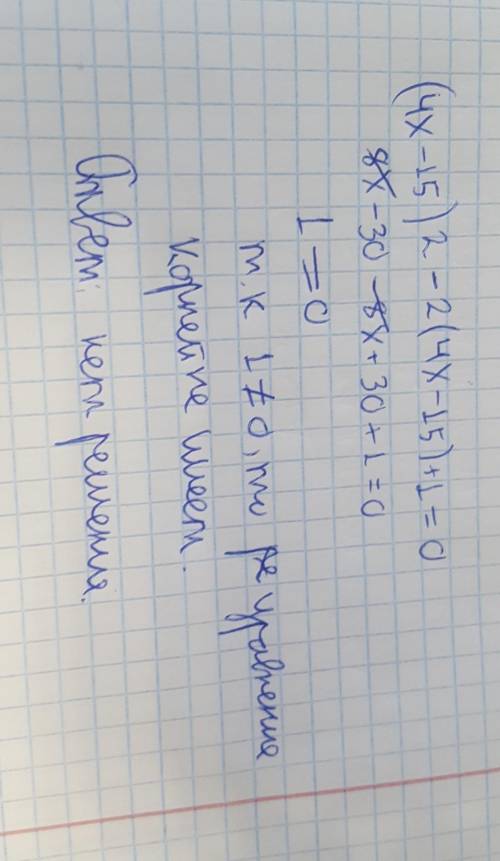 (4x-15)2-2(4x-15)+1=0
8x-30-8x+30+1=0
1=0
т.к 1≠0, то уравнение
корней не имеет.
Ответ: нет решения.